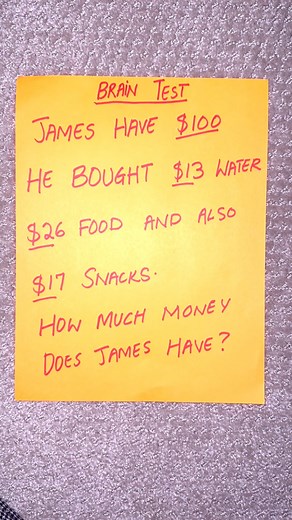 BRAIN TEST
JAMES HAVE $100
HE BOUGHT $13 WATER
$26 FOOD AND ALSO
$17 SNACKS.
HOW MUCH MONEY
DOES JAMES HAVE?